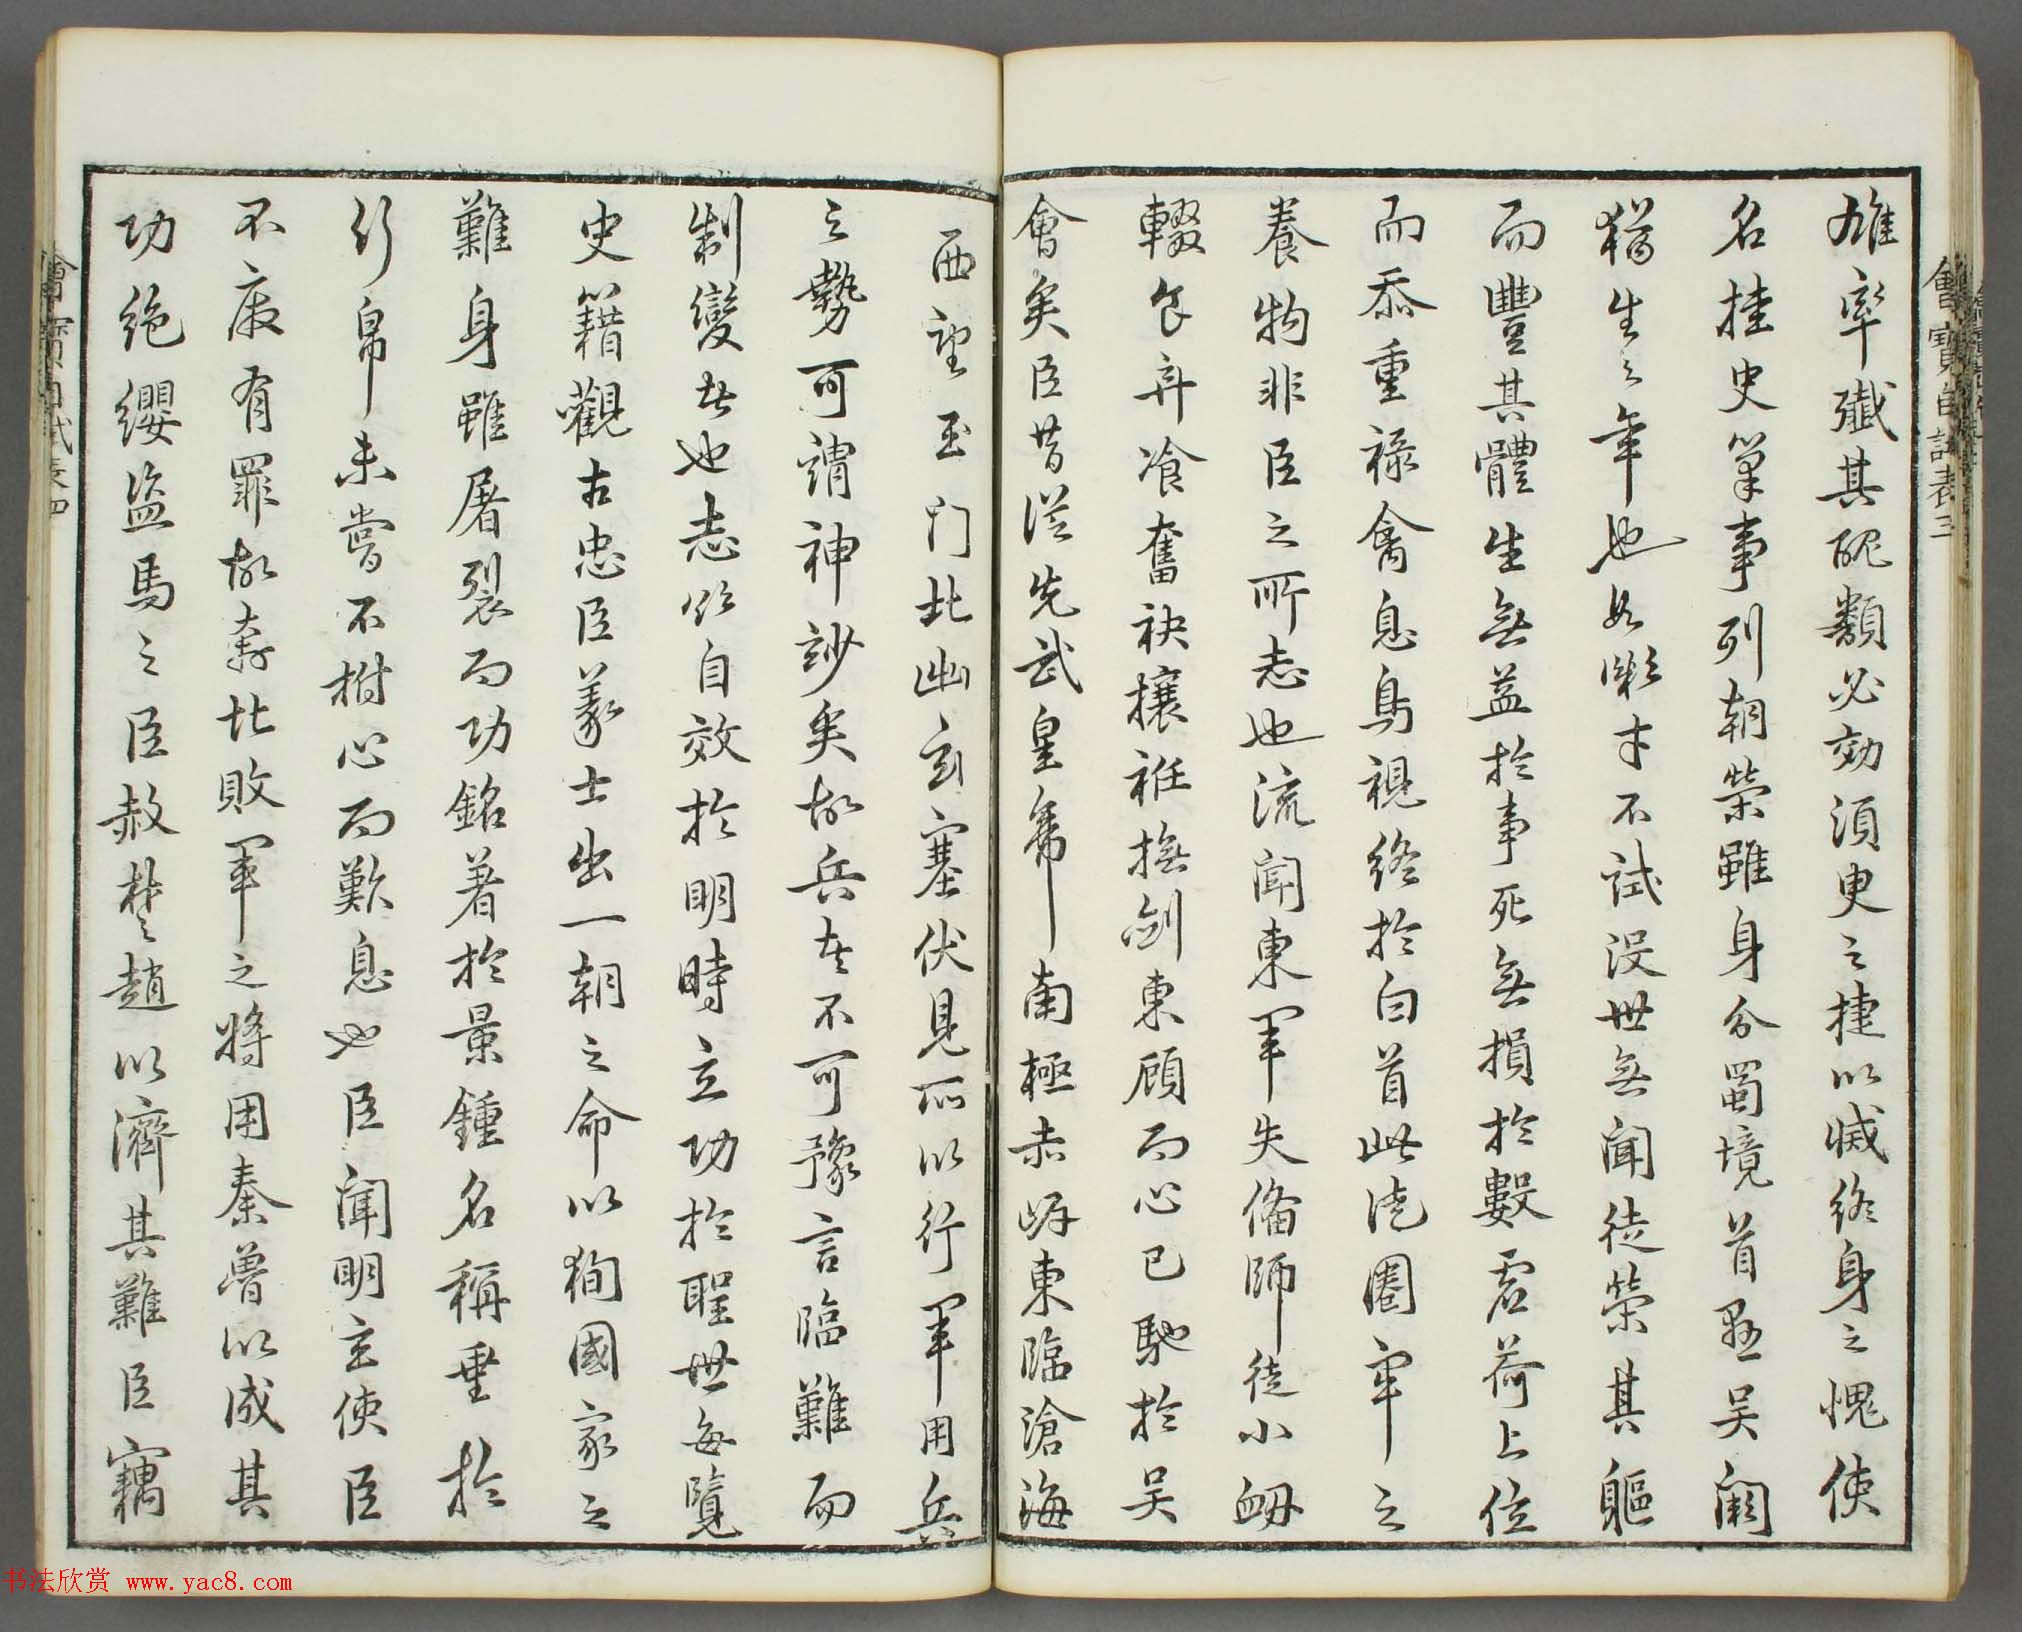 雄率殲其醜類必効須臾之捷以滅終身之愧使
名挂史筆事列朝榮雖身分蜀境首懸吳闕
猶生之年也如微才不試沒世無聞徒榮其軀
而豐其體生無益於事死無損於數虛荷上位
而忝重祿禽息鳥視終於白首此徒圈牢之
養物非臣之所志也流聞東軍失備師徒小衂
輟食弃飡奮袂攘袵撫劍東顧而心已馳於吳
會矣臣昔從先武皇帝南極赤岸東臨滄海
西望玉門北出玄塞伏見所以行軍用兵
之勢可謂神妙矣故兵者不可豫言臨難而
制變者也志欲自效於明時立功於聖世每覽
史籍觀古忠臣義士出一朝之命以狥國家之
難身雖屠裂而功銘著於景鍾名稱垂於
竹帛未嘗不拊心而歎息也臣聞明主使臣
不廢有罪故奔北敗軍之將用秦魯以成其
功絶纓盜馬之臣赦楚趙以濟其難臣竊
會寶自試表三
書法欣賞 www.yac8.com